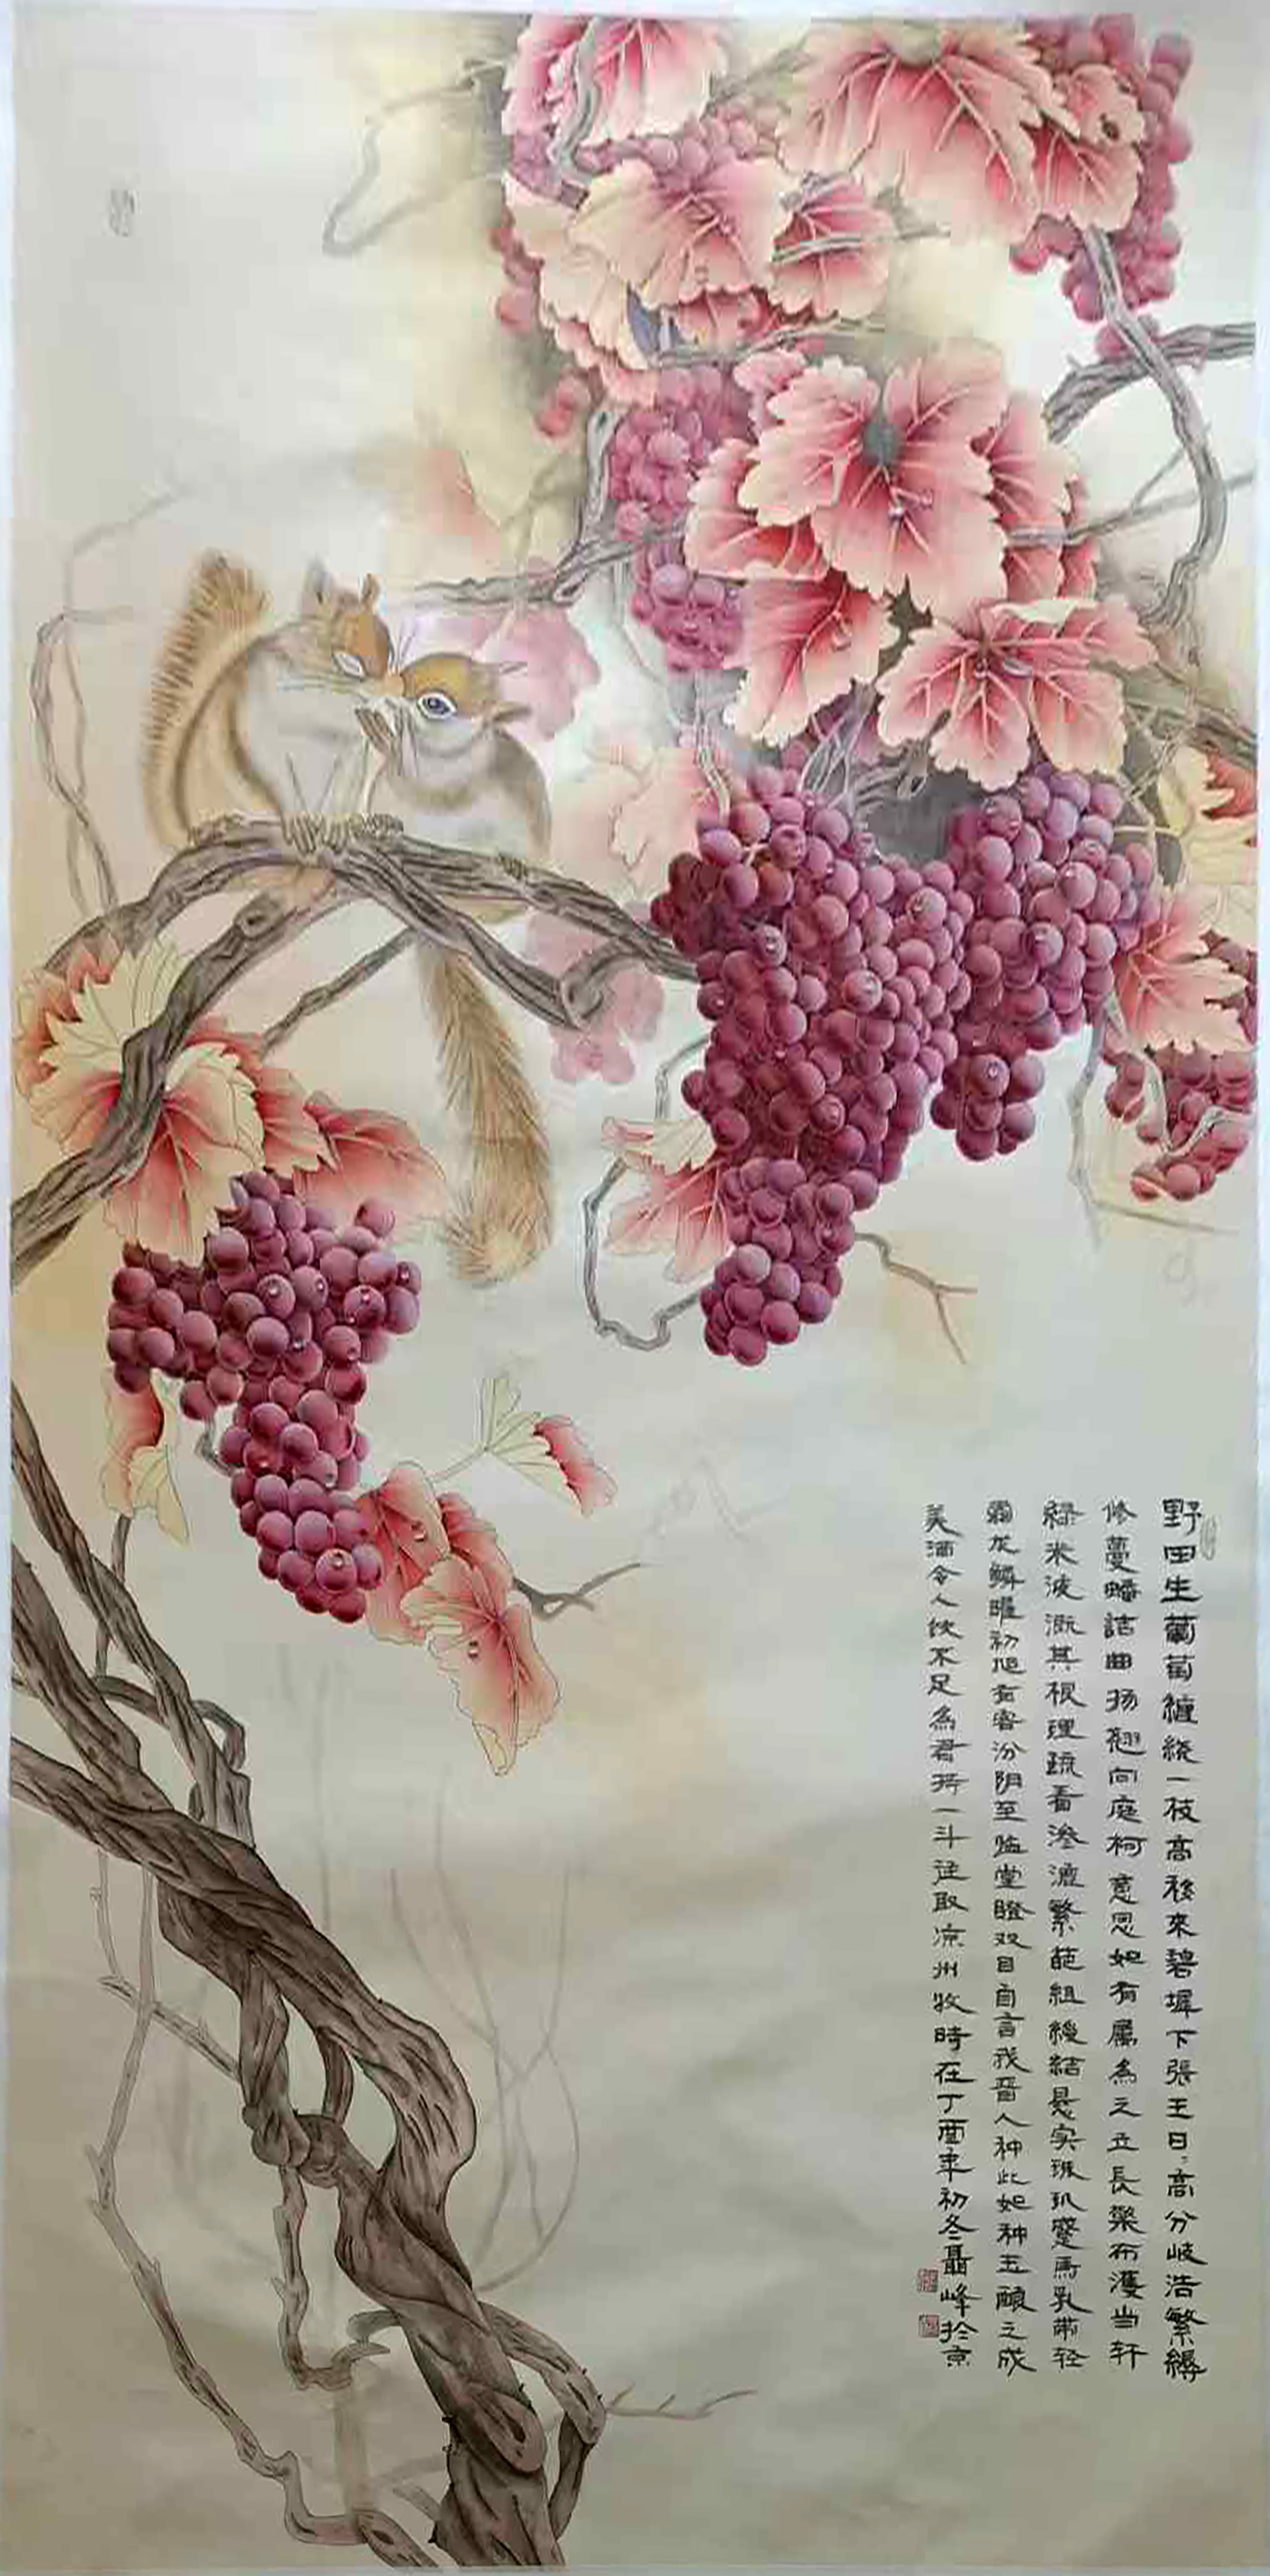 野田生葡萄纏繞一枝高移來碧墀下張王日〻高分岐浩繁縟
修蔓蟠詰曲扬翘向庭柯意思如有屬為之立長檠布濩当轩
綠米液溉其根理疏看滲漉繁葩組綬結悬实珠玑蹙馬乳带轻
霜龙鳞曜初旭有客汾阴至臨堂瞪双目自言我晉人种此如种玉酿之成
美酒令人饮不足為君持一斗往取凉州牧時在丁酉年初冬聶峰於京